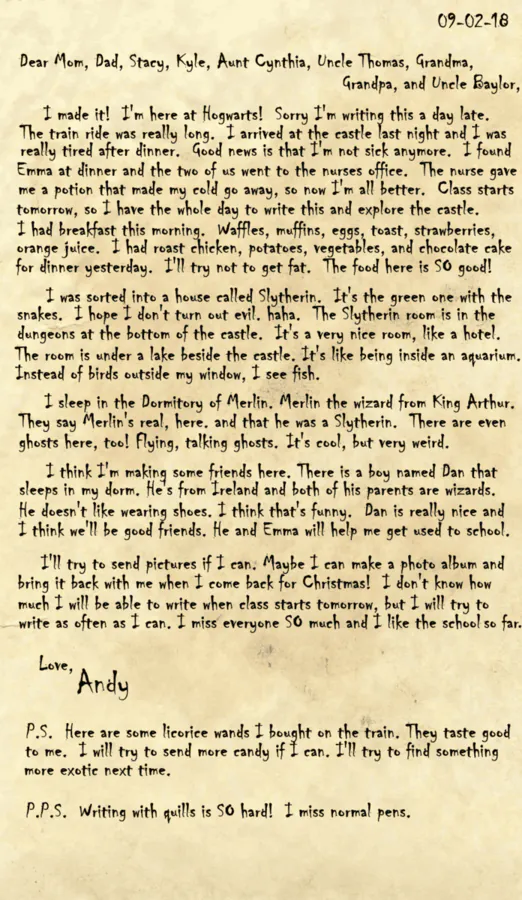 09-02-18
Dear Mom, Dad, Stacy, Kyle, Aunt Cynthia, Uncle Thomas, Grandma,
Grandpa, and Uncle Baylor,
I made it! I'm here at Hogwarts! Sorry I'm writing this a day late.
The train ride was really long. I arrived at the castle last night and I was
really tired after dinner. Good news is that I'm not sick anymore. I found
Emma at dinner and the two of us went to the nurses office. The nurse gave
me a potion that made my cold go away, so now I'm all better. Class starts
tomorrow, so I have the whole day to write this and explore the castle.
I had breakfast this morning. Waffles, muffins, eggs, toast, strawberries,
orange juice. I had roast chicken, potatoes, vegetables, and chocolate cake
for dinner yesterday. I'll try not to get fat. The food here is SO good!
I was sorted into a house called Slytherin. It's the green one with the
snakes. I hope I don't turn out evil. haha. The Slytherin room is in the
dungeons at the bottom of the castle. It's a very nice room, like a hotel.
The room is under a lake beside the castle. It's like being inside an aquarium.
Instead of birds outside my window, I see fish.
I sleep in the Dormitory of Merlin. Merlin the wizard from King Arthur.
They say Merlin's real, here. and that he was a Slytherin. There are even
ghosts here, too! Flying, talking ghosts. It's cool, but very weird.
I think I'm making some friends here. There is a boy named Dan that
sleeps in my dorm. He's from Ireland and both of his parents are wizards.
He doesn't like wearing shoes. I think that's funny. Dan is really nice and
I think we'll be good friends. He and Emma will help me get used to school.
I'll try to send pictures if I can. Maybe I can make a photo album and
bring it back with me when I come back for Christmas! I don't know how
much I will be able to write when class starts tomorrow, but I will try to
write as often as I can. I miss everyone SO much and I like the school so far.
Love,
Andy
P.S. Here are some licorice wands I bought on the train. They taste good
to me. I will try to send more candy if I can. I'll try to find something
more exotic next time.
P.P.S. Writing with quills is SO hard! I miss normal pens.